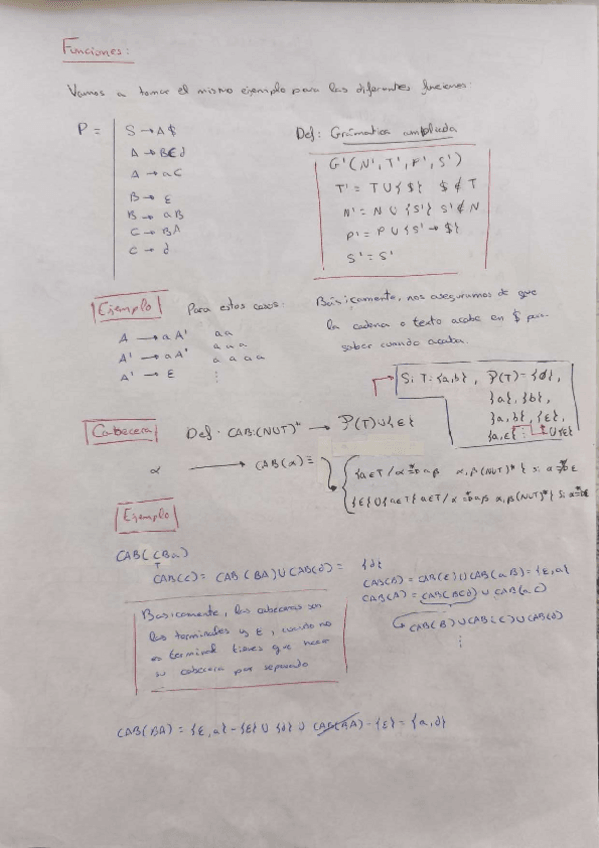 Funciones:
Vamos a tomar el mismo ejemplo para las diferentes funciones:
P = S → A$
A → BCd
A → aC
B → ε
B → aB
C → BA
C → d
Def: Gramatica ampliada
G'(N', T', P', S')
T' = T ∪ {$} $ ∉ T
N' = N ∪ {S'} S' ∉ N
P' = P ∪ {S' → $}
S' = S'
Ejemplo
Para estos casos:
A → aA' aa
A' → aA' aaa
A' → ε aaaa
⋮
Básicamente, nos aseguramos de que
la cadena o texto acabe en $ para
saber cuando acaba.
Si T={a,b}, P(T)={Ø},
{a}, {b},
{a,b}, {ε},
{a,ε} ⋮ ∪{ε}
Cabecera
Def. CAB:(N∪T)* → P(T)∪{ε}
α → CAB(α)≡
{a∈T / α ⇒ aβ α,β(N∪T)*} si α ⇒ ε
{ε}∪{a∈T a∈T / α ⇒ aβ α,β(N∪T)*} si α ⇒ ε
Ejemplo
CAB(CBa)
CAB(C) = CAB(BA)∪CAB(d) = {d}
CAB(B) = CAB(ε)∪CAB(aB) = {ε,a}
CAB(A) = CAB(BCd) ∪ CAB(aC)
CAB(B)∪CAB(C)∪CAB(d)
⋮
Basicamente, las cabeceras son
los terminales y ε, cuando no
es terminal tienes que hacer
su cabecera por separado
CAB(BA) = {ε,a}-{ε} ∪ {d} ∪ CAB(BA)-{ε} = {a,d}